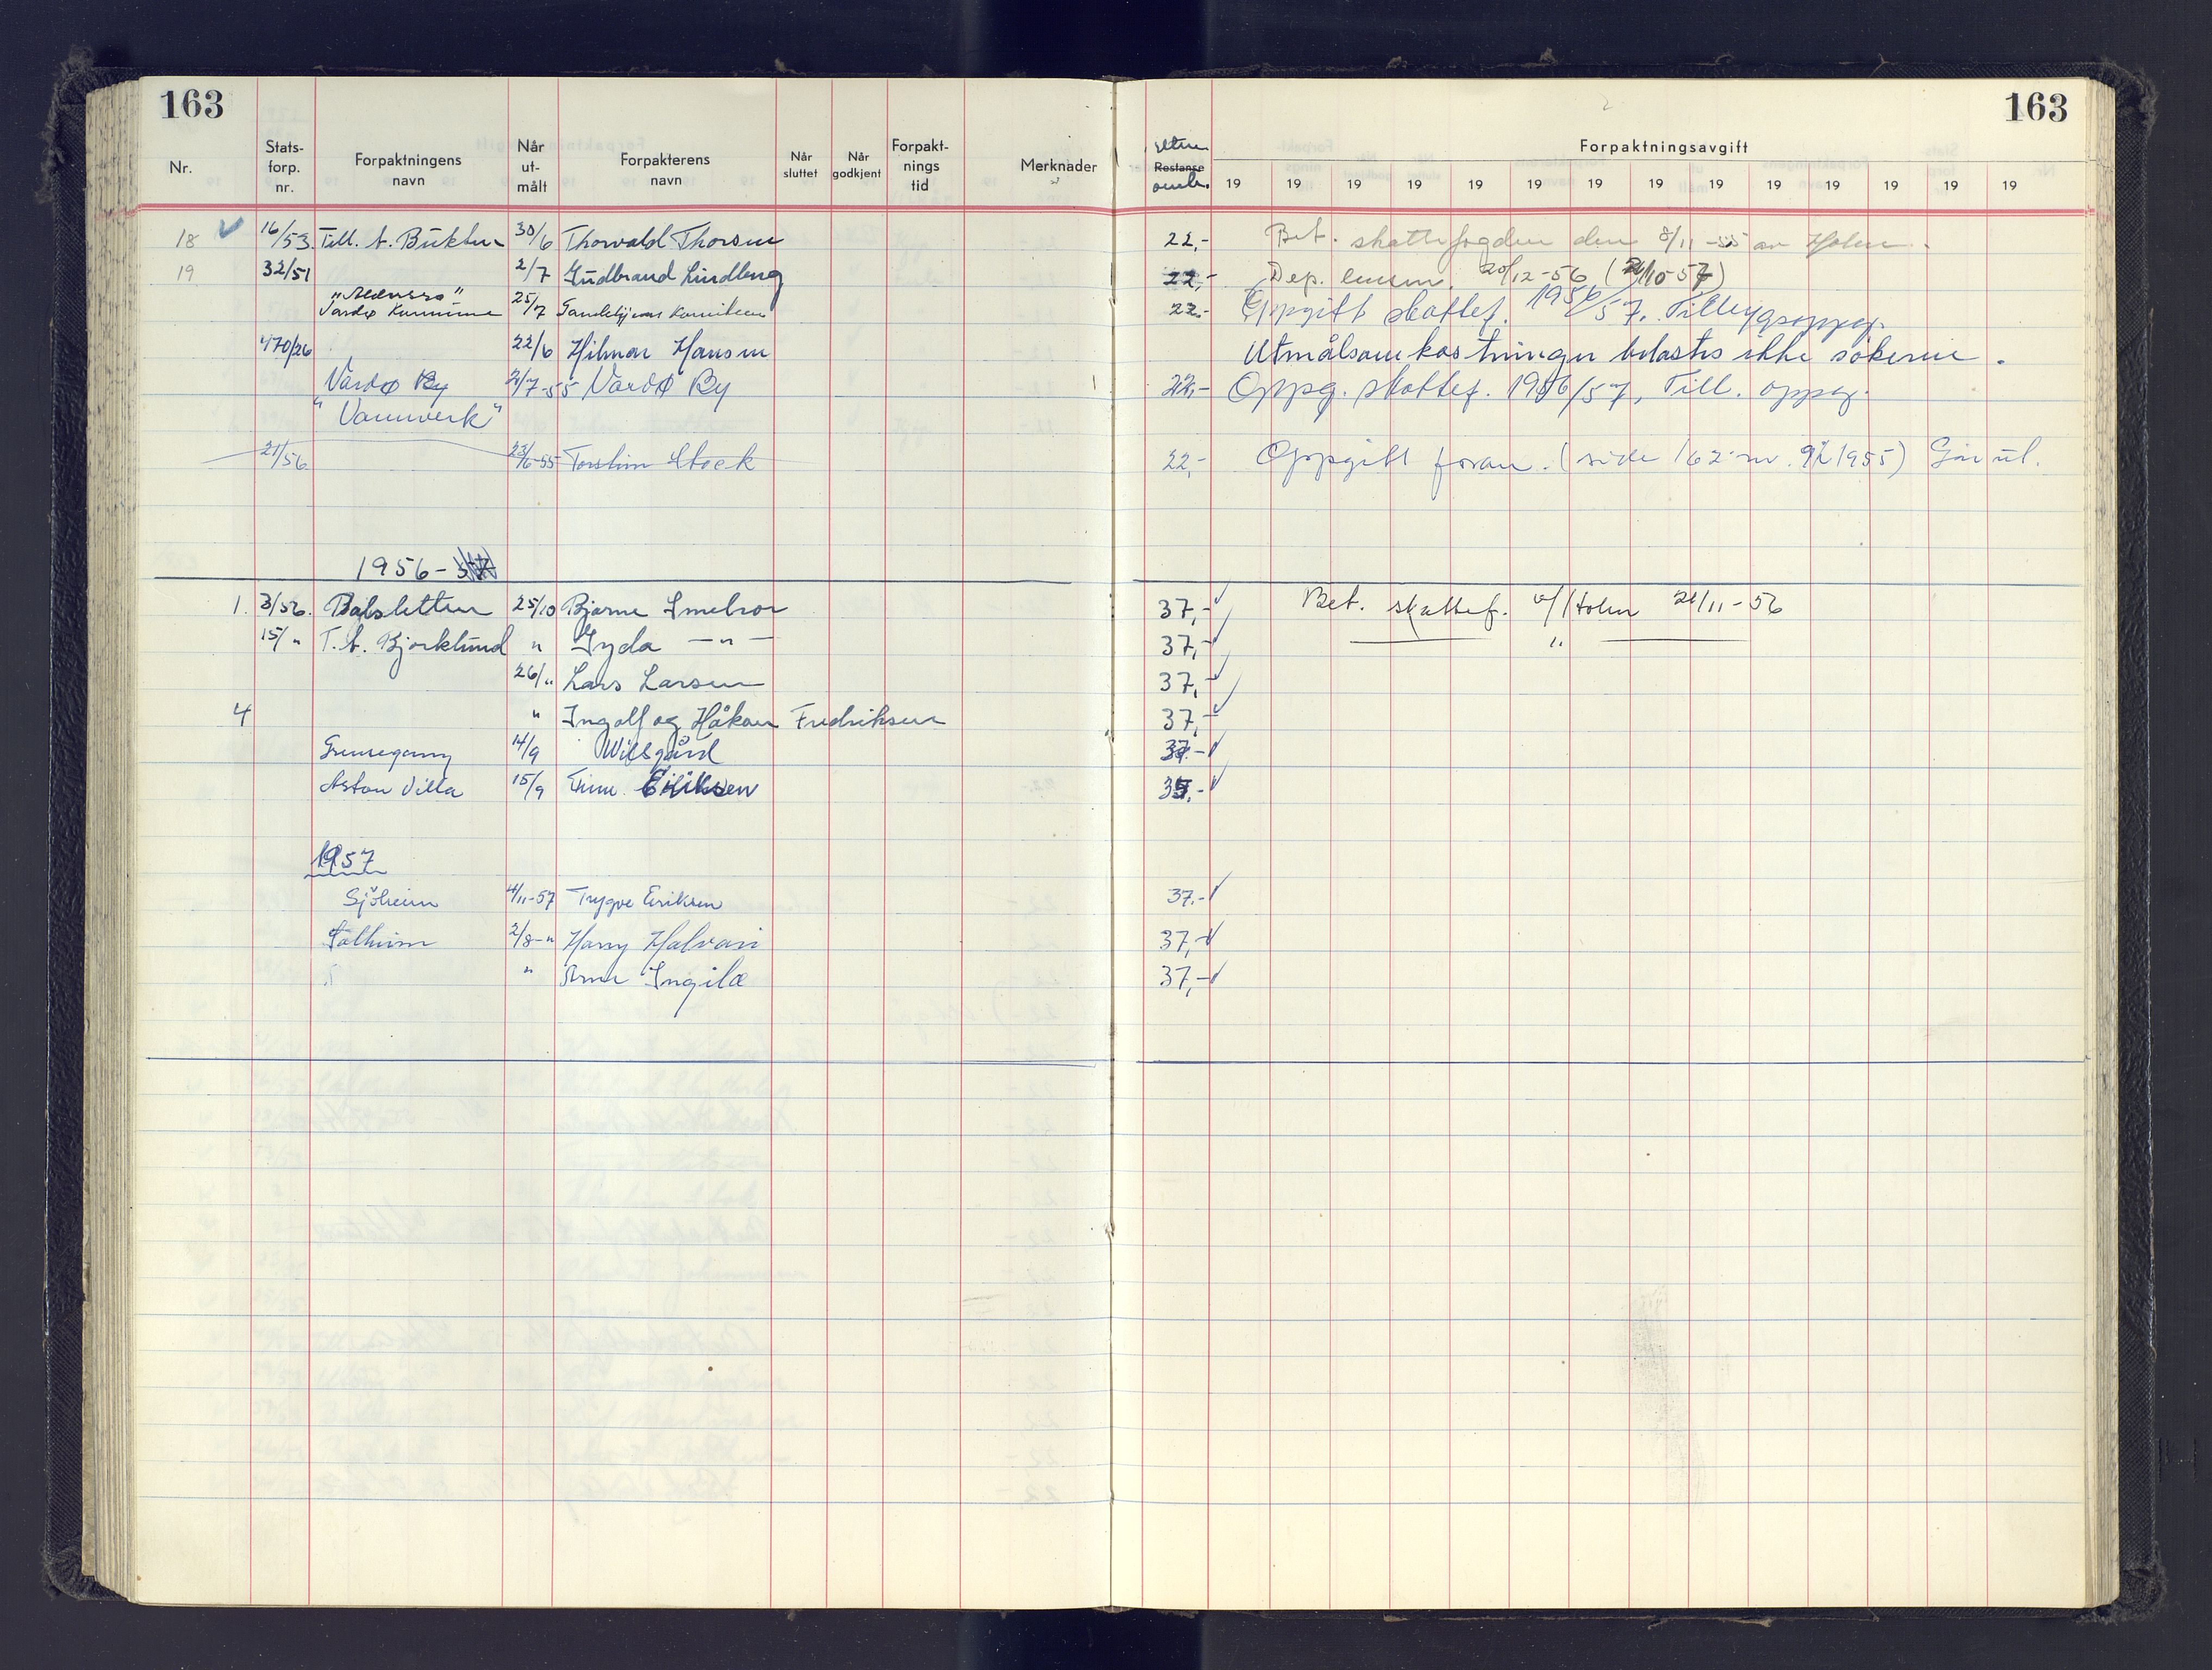 163 163
Nr. Stats-forp. nr. Forpaktningens navn Når ut-målt Forpakterens navn Når sluttet Når godkjent Forpakt-nings tid Merknader Restanse Forpaktningsavgift
19 19 19 19 19 19 19 19 19 19 19 19 19 19
18 16/53. Till. t. Bukten 30/6 Thorvald Thorsen 22,- Bet. skattefogden den 8/11-55 av Holm.
19 32/51 2/7 Gudbrand Lindberg 22,- Dep. lensm. 20/12-56
Vardø Kommune 25/7 22.- Oppgitt skattef. 1956/57. Tilleggsoppg.
470/26 22/6 Hilmar Hansen Utmålsomkostninger belastes ikke søkerne.
Vardø By 2/7-55 Vardø By 22,- Oppg. skattef. 1956/57, Till. oppg.
"Vannverk"
21/56 23/6-55 Torstein Stock 22,- Oppgitt foran. (side 162 nr. 9/1955) Går ut.
1956-
1. 3/56. 25/10 Bjarne Smelror 37,- Bet. skattef. v/Holm 21/11-56
15/" T.t. Bjørklund " Gyda -"- 37,- "
26/" Lars Larsen 37,-
4 " Ingolf og Håkon Fredriksen 37,-
14/9 Wilsgård 37.-
Aston Villa 15/9 Finn Eriksen
1957
Sjøheim 4/11-57 Trygve Eriksen 37.-
Solheim 2/8-" Harry Halvari 37,-
" Arne Ingilæ 37,-